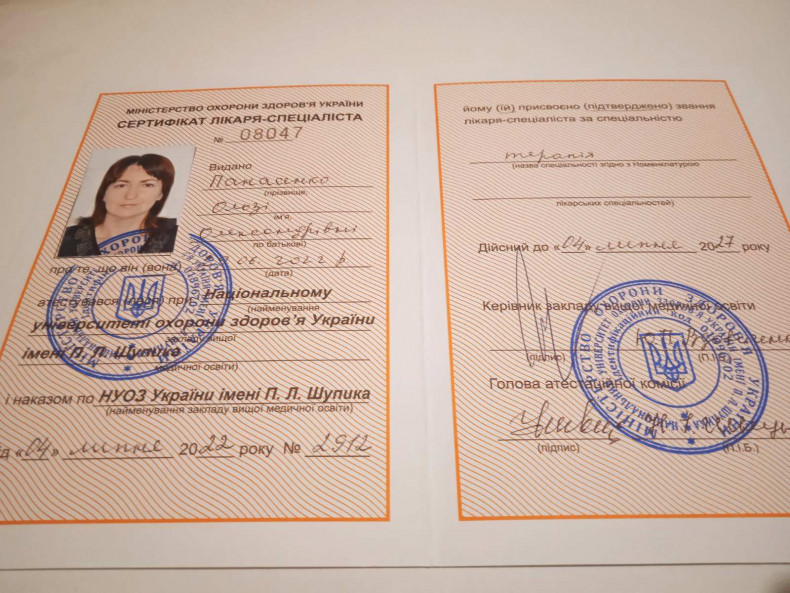 МІНІСТЕРСТВО ОХОРОНИ ЗДОРОВ'Я УКРАЇНИ
СЕРТИФІКАТ ЛІКАРЯ-СПЕЦІАЛІСТА
№ 08047
Видано
Панасенко
(прізвище,
Ользі
ім'я,
Олександрівні
по батькові)
про те, що він (вона) 06.2022 р
(дата)
атестувався (лася) при Національному
(найменування
університеті охорони здоров'я України
закладу вищої
імені П. Л. Шупика
медичної освіти)
і наказом по НУОЗ України імені П. Л. Шупика
(найменування закладу вищої медичної освіти)
«04» липня 2022 року № 2912
йому (їй) присвоєно (підтверджено) звання
лікаря-спеціаліста за спеціальністю
терапія
(назва спеціальності згідно з Номенклатурою
лікарських спеціальностей)
Дійсний до «04» липня 2027 року
Керівник закладу вищої медичної освіти
(підпис)
Голова атестаційної комісії
(підпис) (П.І.Б.)